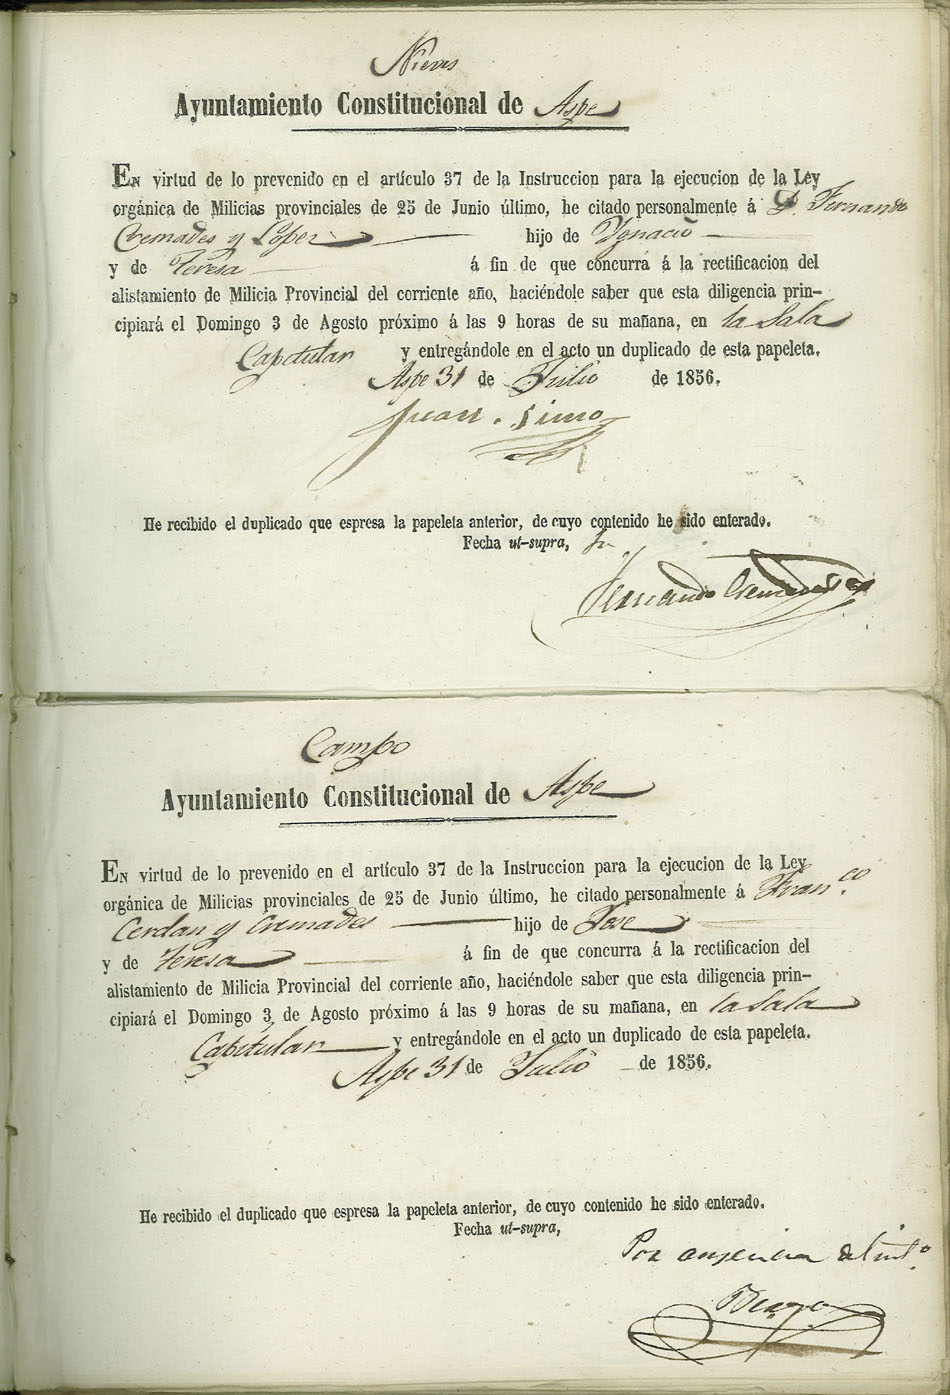 Nieves
Ayuntamiento Constitucional de Aspe
En virtud de lo prevenido en el artículo 37 de la Instruccion para la ejecucion de la Ley
orgánica de Milicias provinciales de 25 de Junio último, he citado personalmente á D. Fernando
Cremades y Lopez hijo de Ygnacio
y de Teresa á fin de que concurra á la rectificacion del
alistamiento de Milicia Provincial del corriente año, haciéndole saber que esta diligencia prin-
cipiará el Domingo 3 de Agosto próximo á las 9 horas de su mañana, en la Sala
Capitular y entregándole en el acto un duplicado de esta papeleta.
Aspe 31 de Julio de 1856.
Juan Simo
He recibido el duplicado que espresa la papeleta anterior, de cuyo contenido he sido enterado.
Fecha ut-supra,
Fernando Cremades
Campo
Ayuntamiento Constitucional de Aspe
En virtud de lo prevenido en el artículo 37 de la Instruccion para la ejecucion de la Ley
orgánica de Milicias provinciales de 25 de Junio último, he citado personalmente á Fran.co
Cerdan y Cremades hijo de Jose
y de Teresa á fin de que concurra á la rectificacion del
alistamiento de Milicia Provincial del corriente año, haciéndole saber que esta diligencia prin-
cipiará el Domingo 3 de Agosto próximo á las 9 horas de su mañana, en la Sala
Capitular y entregándole en el acto un duplicado de esta papeleta.
Aspe 31 de Julio de 1856.
He recibido el duplicado que espresa la papeleta anterior, de cuyo contenido he sido enterado.
Fecha ut-supra,
Por ausencia del int.o